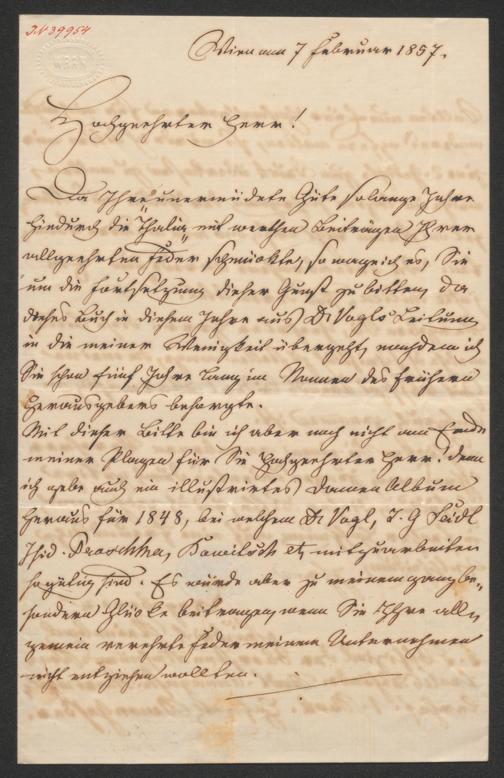 IN 39954
Wien am 7 Februar 1857.
Hochgeehrter Herr!
Da Ihre unermüdete Güte so lange Jahre
hindurch die Thalia mit werthen Beiträgen Ihrer
allgeehrten Feder schmückte, so wage ich es, Sie
um die Fortsetzung dieser Gunst zu bitten, da
dieses Buch in diesem Jahre aus Dr Vogls Leitung
in die meiner Wenigkeit übergeht, nachdem ich
Sie schon fünf Jahre lang im Namen des frühern
Herausgebers besorgte.
Mit dieser Bitte bin ich aber noch nicht am Ende
meiner Plagen für Sie Hochgeehrter Herr! denn
ich gebe auch ein illustrirtes Damen Album
heraus für 1848, bei welchem Dr Vogl, J. G Seidl
Isid. Proschko, etz mitzuarbeiten
so gütig sind. Es würde aber zu meinem ganz be-
sondern Glücke beitragen, wenn Sie Ihre all-
gemein verehrte Feder meinem Unternehmen
nicht entziehen wollten.